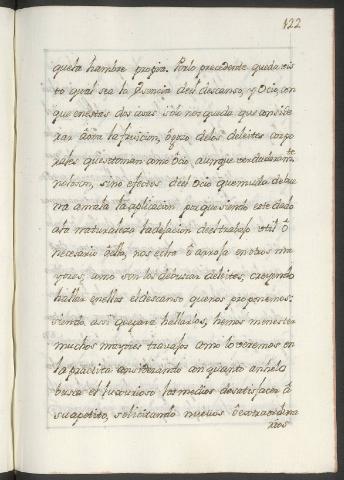 122
que la hambre propria. Por lo precedente queda vis
to qual sea la Esencia del descanso, y Ocio, con
que en estas dos cosas solo nos queda que conside
rar sobre la fruicion, ò gozo de los deleites corpo
rales que se toman como Ocio, aunque verdaderamte
no lo son, sino efectos del Ocio que muda de bue
na a mala la aplicacion porque siendo este dado
a la naturaleza la de trabajo util ò
necesario à ella, nos echa ò arroja en otros ma
yores; como son los de buscar deleites, creyendo
hallar en ellos el descanso que nos proponemos:
siendo assi que para hallarlos, hemos menester
muchos mayores trabajos como lo veremos en
la practica considerando con quanto anhelo
busca el luxurioso los medios de satisfacer à
su apetito, solicitando nuevos ò extraordina
rios